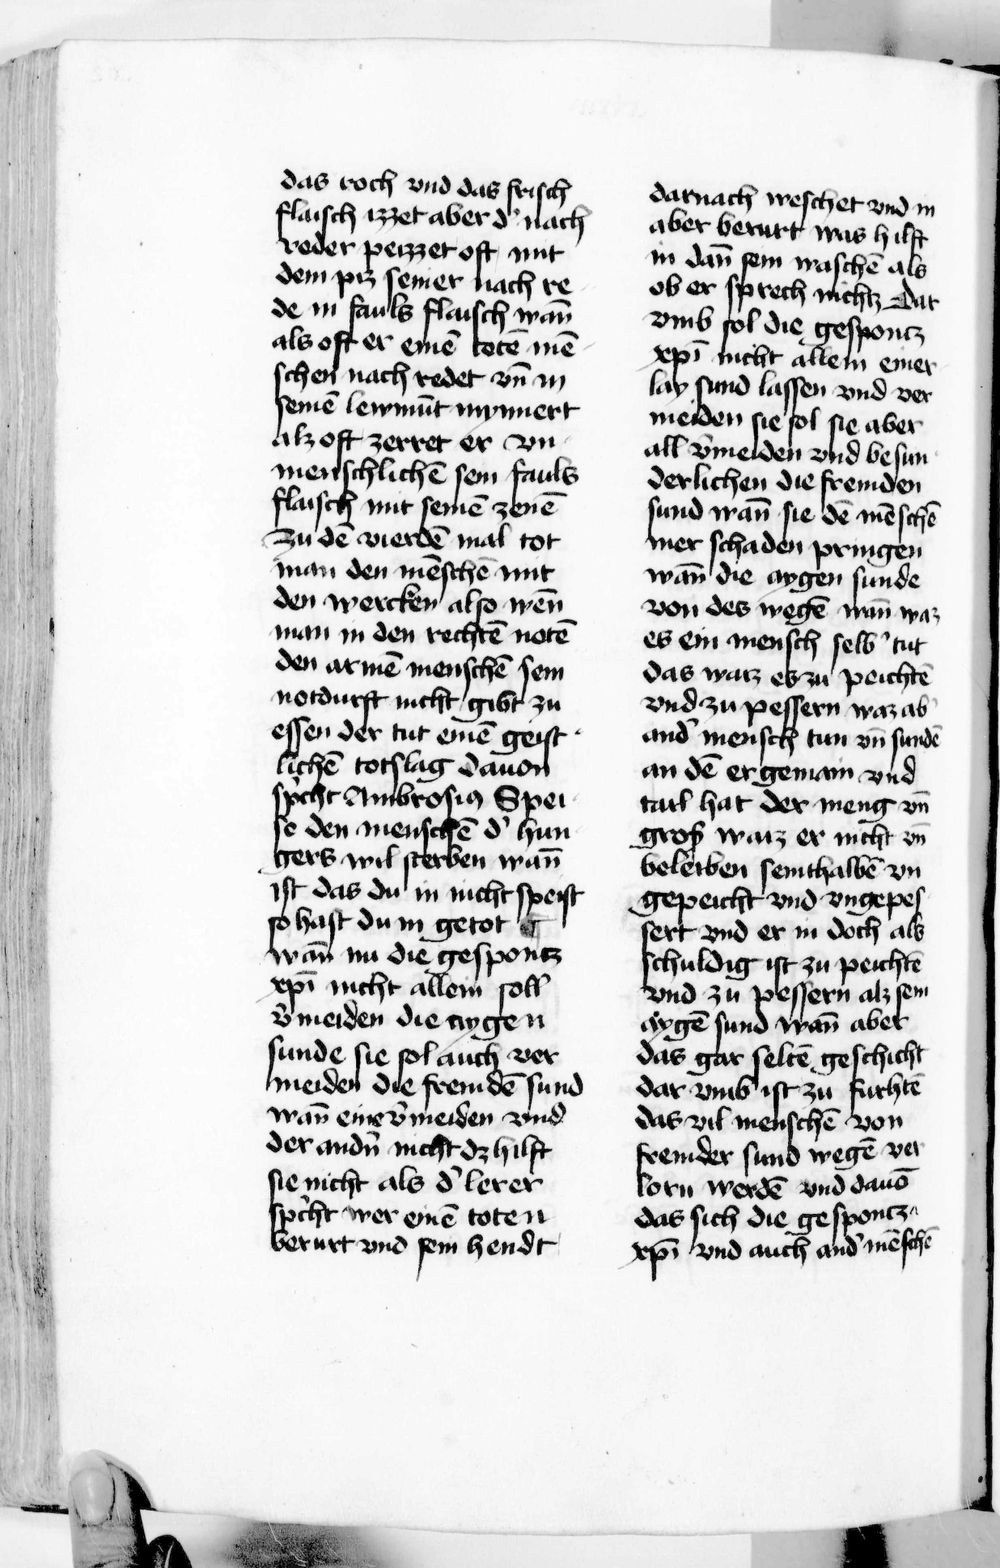 das roch vnd das frisch
flaisch izzet aber d' nach
reder peizzet oft mit
dem piz seiner nach re
de in fauls flaisch wan̄
als oft er einē totē mē
schen nach redet vn̄ in
seinē lewmūt mynnert
alz oft zerret er vn
menschlichē sein fauls
flaisch mit seinē zenē
Zu dē vierdē mal tot
man den mēschē mit
den wercken also wēn
man in den rechtē notē
den armē menschē sein
notdurft nicht gibt zu
essen der tut einē geist
lichē totslag dauon
sp'cht Ambrosius Spei
se den menschē d' hun
gers wil sterben wan̄
ist das du in nicht speist
so hast du in getot ¶
wan̄ nu die gespontz
xp̄i nicht allein soll
v'meiden die aygen
sunde sie sol auch ver
meiden die fremdē sund
wan̄ eine v'meiden vnd
der andn̄ nicht dz hilft
sie nicht als d' lerer
sp'cht wer einē toten
berurt vnd sein hendt
darnach weschet vnd in
aber berurt was hilft
in dan̄ sein waschē als
ob er sprech nichtz Dar
vmb sol die gespontz
xp̄i nicht allein einer
lay sund lassen vnd ver
meiden sie sol sie aber
all v'meiden vnd besun
derlichen die fremden
sund wan̄ sie dē mēschē
mer schaden pringen
wan̄ die aygen sunde
von des wegē wan̄ waz
es ein mensch selb' tut
das waiz es zu peichtē
vnd zu pessern waz ab'
and' mensch tun vn̄ sundē
an dē er gemain vnd
tail hat der meng vn̄
groß waiz er nicht vn̄
beleiben seinthalbē vn
gepeicht vnd vngepes
sert vnd er in doch als
schuldig ist zu peichtē
vnd zu pessern alz sein
aygē sund wan̄ aber
das gar seltē geschicht
dar vmb ist zu furchtē
das vil menschē von
fremder sund wegē ver
lorn werdē vnd dauō
das sich die gespontz
xp̄i vnd auch and' mēschē